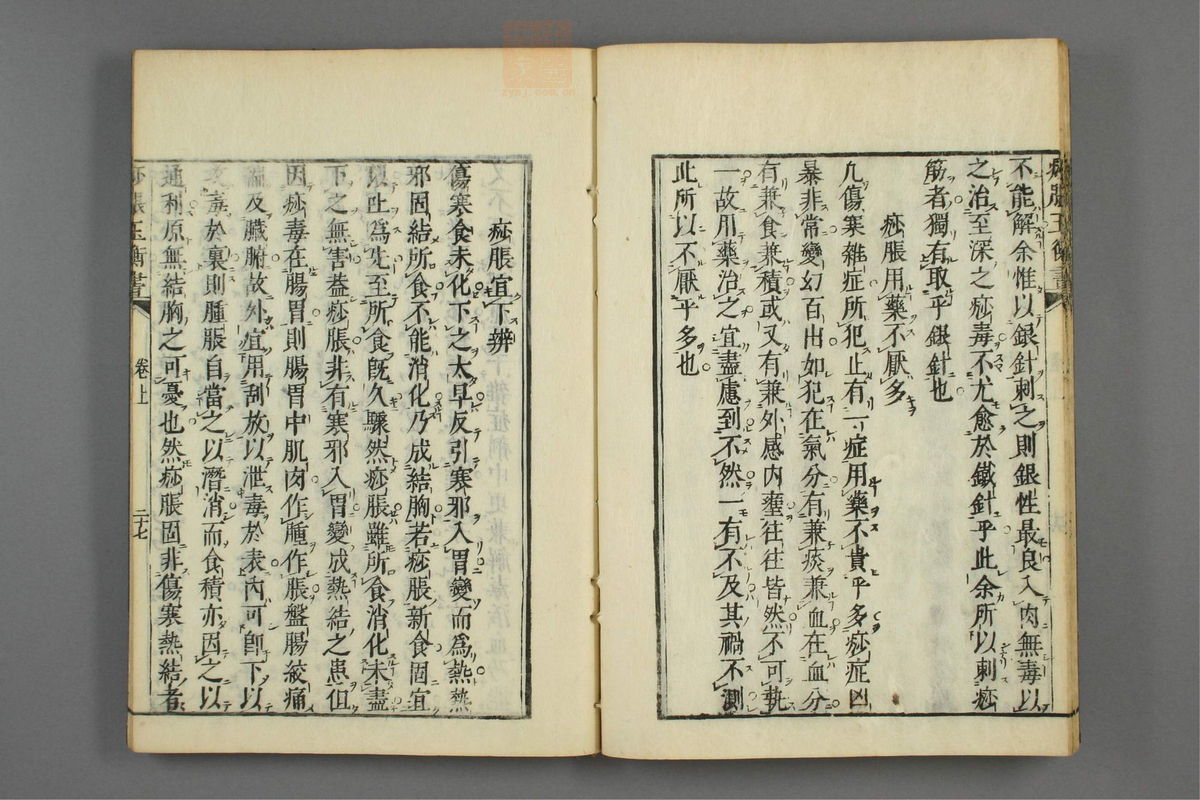 痧脹玉衡書
不能解余惟以銀針刺之則銀性最良入肉無毒以
之治至深之痧毒不尤愈於鐵針乎此余所以刺痧
筋者獨有取乎銀針也
痧脹用藥不厭多
凢傷寒雜症所犯止有一症用藥不貴乎多痧症凶
暴非常變幻百出如犯在氣分有兼痰兼血在血分
有兼食兼積或又有兼外感内壅往往皆然不可執
一故用藥治之宜盡慮到不然一有不及其禍不測
此所以不厭乎多也
痧脹宜下辨
傷寒食未化下之太早反引寒邪入胃變而爲熱熱
邪固結所食不能消化乃成結胸若痧脹新食固宜
以吐爲先至所食旣久驟然痧脹雖所食消化未盡
下之無害葢痧脹非有寒邪入胃變成熱結之患但
因痧毒在腸胃則腸胃中肌肉作腫作脹盤腸絞痛
遍及臟腑故外宜用刮放以泄毒於表内可卽下以
攻毒於裏則腫脹自當之以潛消而食積亦因之以
通利原無結胸之可憂也然痧脹固非傷寒熱結者
痧脹玉衡書
卷上
二十七
zysj.com.cn